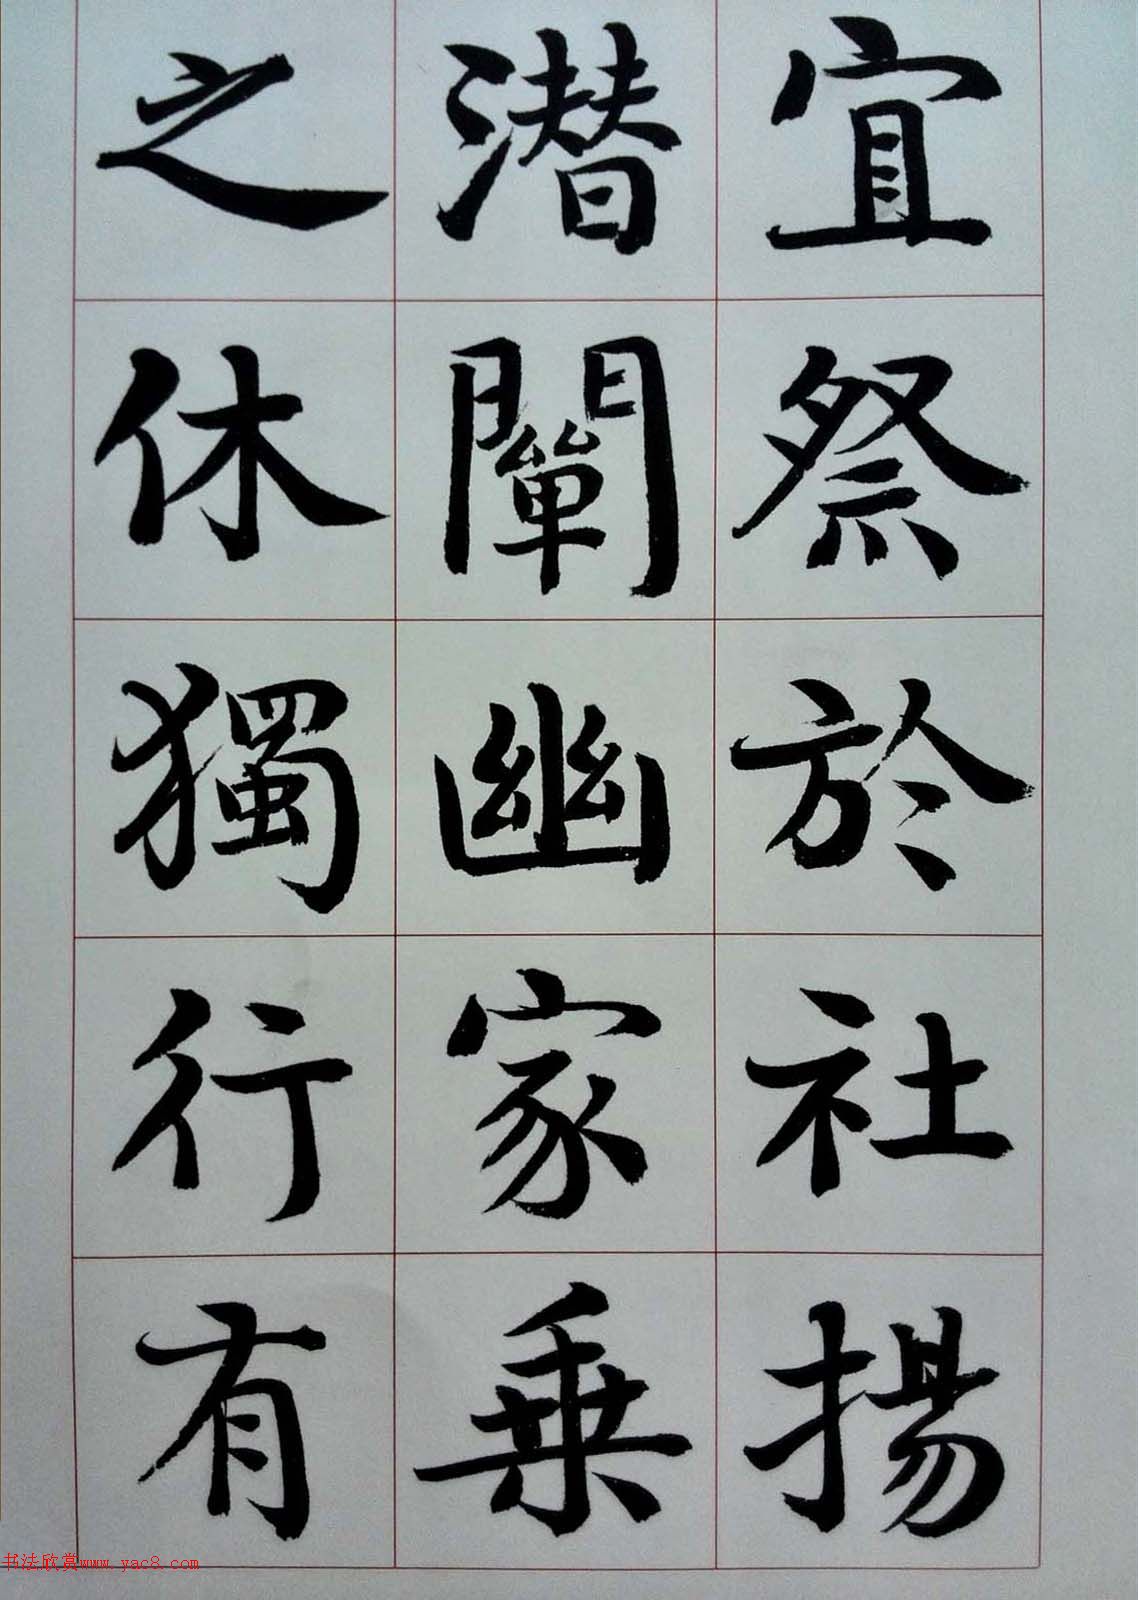 宜祭於社揚
潛闡幽家乗
之休獨行有
书法欣赏www.yac8.com